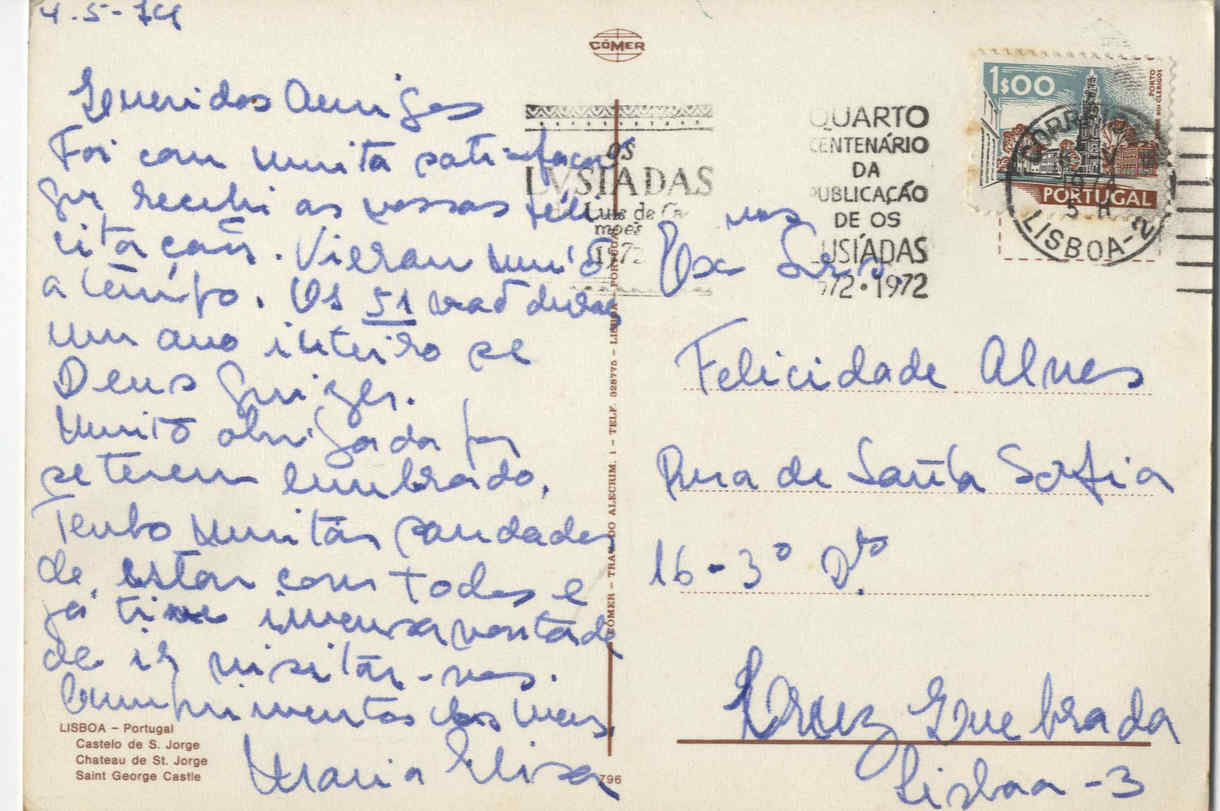 4-5-74
CÓMER
Queridos Amigos
Foi com muita satisfação
que recebi as vossas feli
citações. Vieram muito
a tempo. Os 51 vão durar
um ano inteiro se
Deus quizer.
Muito obrigada por
se terem lembrado.
Tenho muitas saudades
de estar com todos e
já tive imensa vontade
de ir visitar-vos.
Cumprimentos dos meus
Maria Elisa
LISBOA – Portugal
Castelo de S. Jorge
Chateau de St. Jorge
Saint George Castle
OS
LVSIADAS
Luis de Ca
mões
1972
QUARTO
CENTENÁRIO
DA
PUBLICAÇÃO
DE OS
LUSÍADAS
1572 • 1972
1$00
PORTO
PORTUGAL
CORREIOS
LISBOA-2
CÓMER – TRAV. DO ALECRIM, 1 – TELF. 328775 – LISBOA – PORTUGAL
796
Felicidade Alves
Rua de Santa Sofia
16-3º D.to
Cruz Quebrada
Lisboa-3